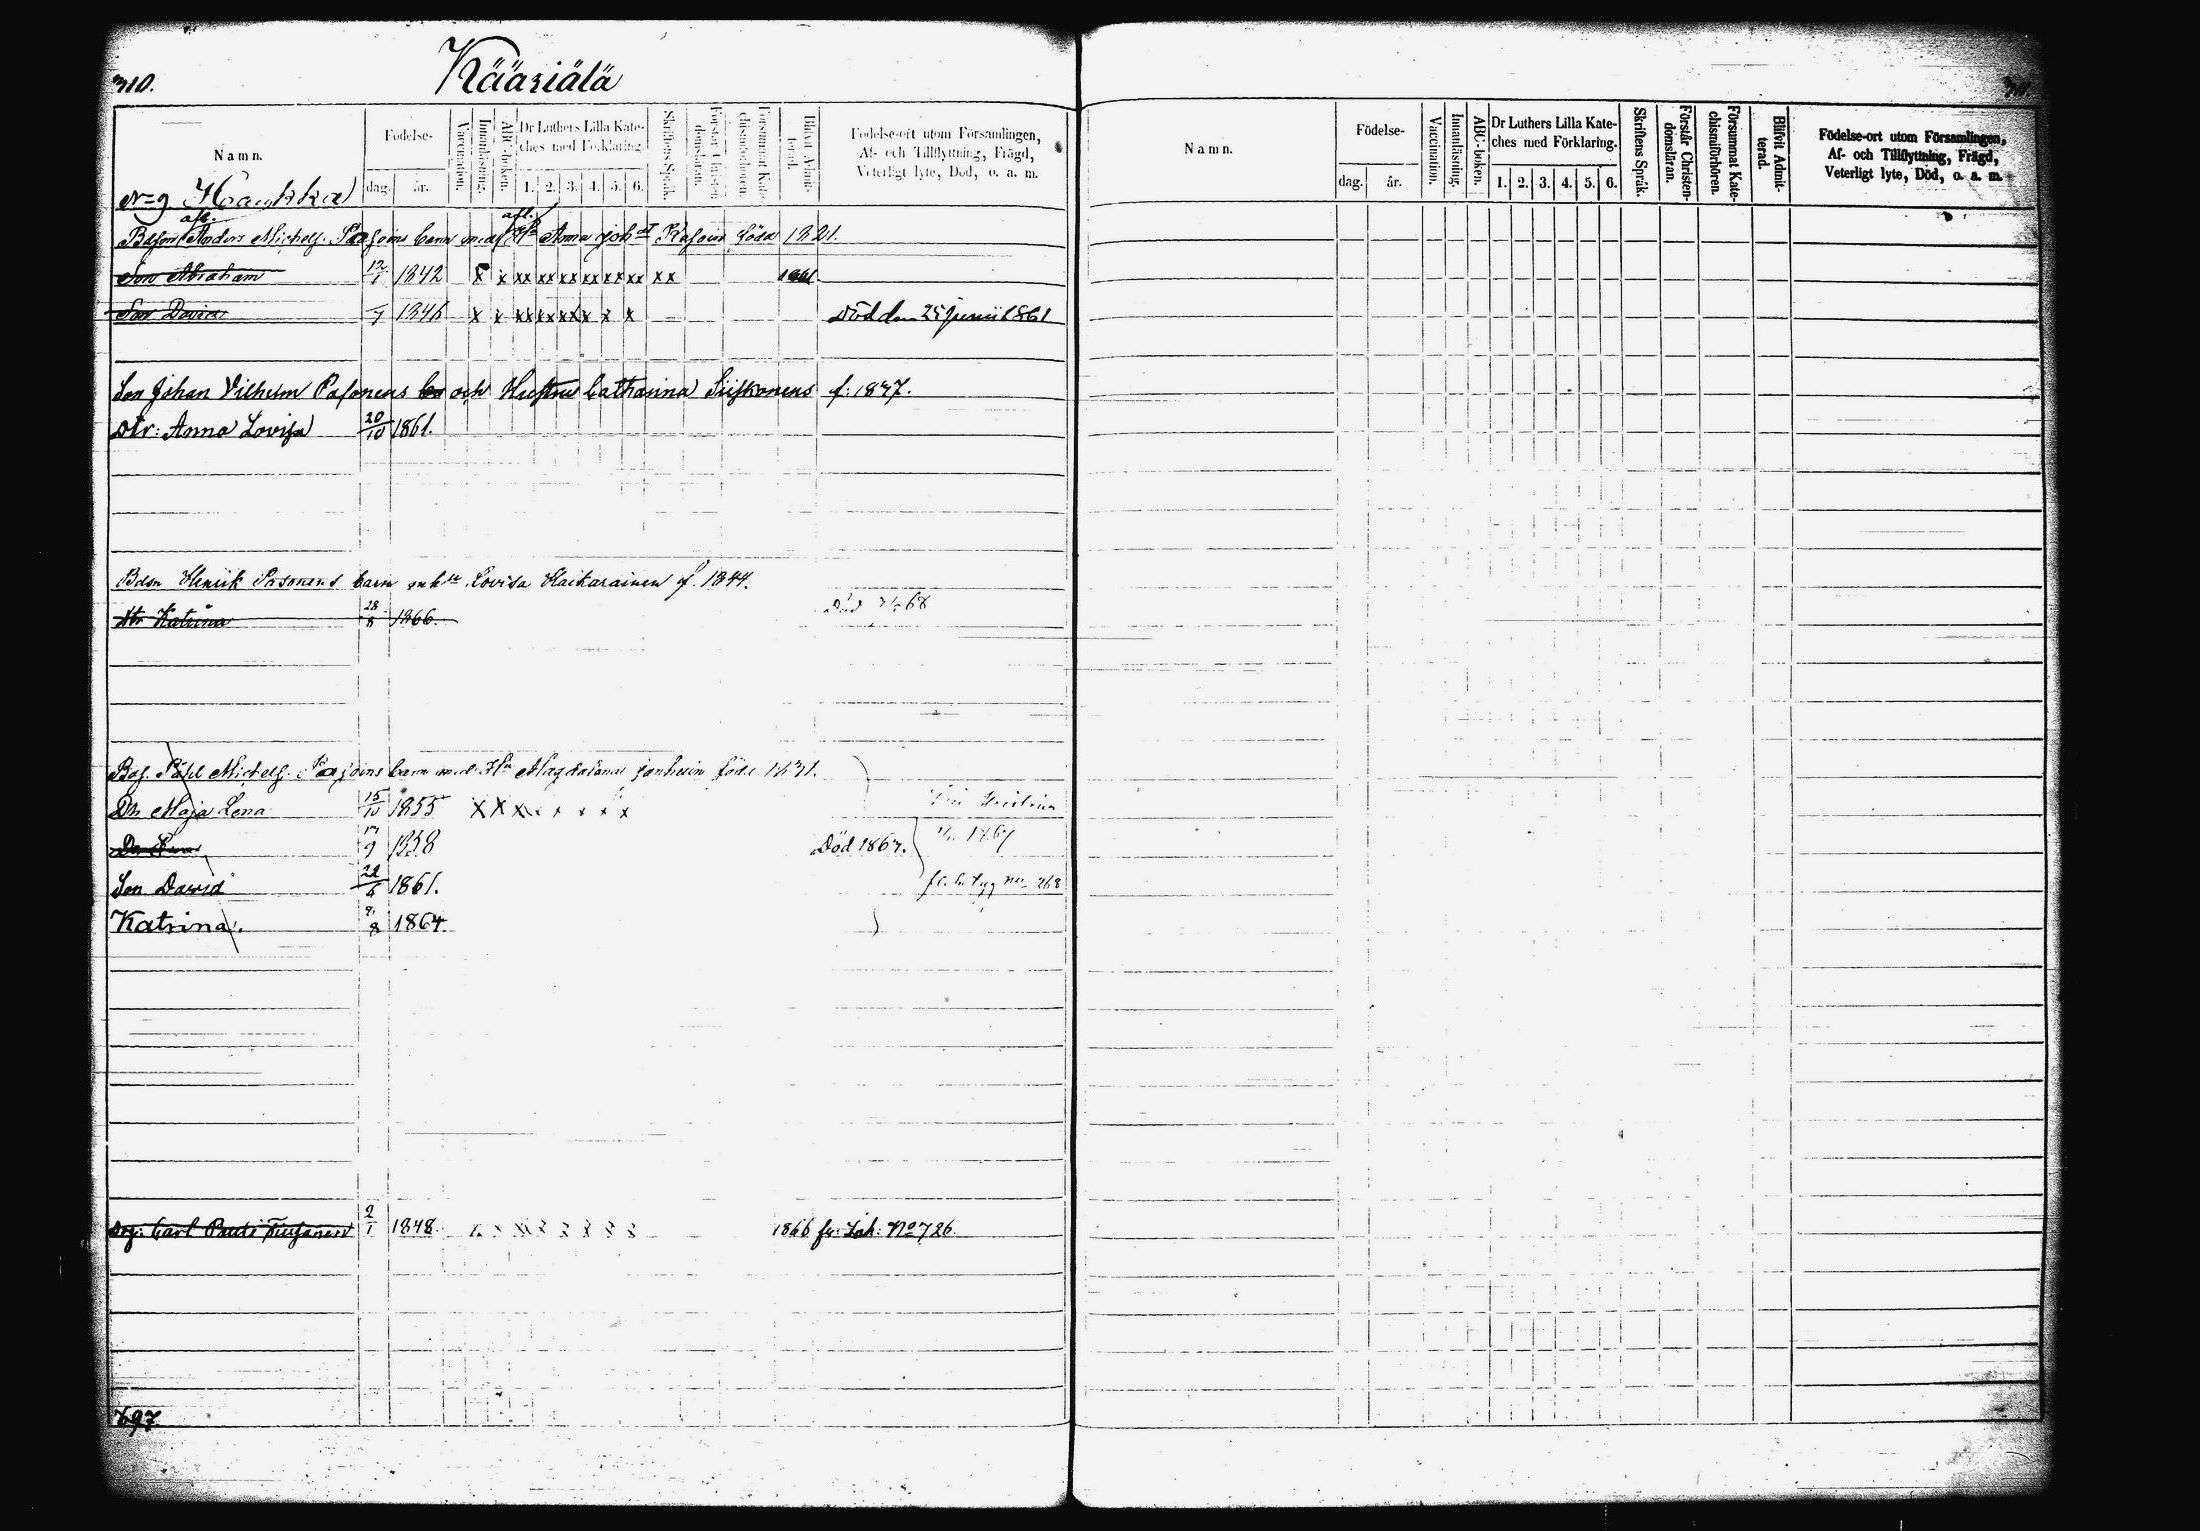 310.
Kääriälä
Namn.
Födelse-
dag.
år.
Vaccination.
Innanläsning.
ABC-boken.
Dr Luthers Lilla Kate-
ches med Förklaring.
1. 2. 3. 4. 5. 6.
Skriftens Språk.
Förstår Christen-
domsläran.
Försummat Kate-
chismiförhören.
Blifvit Admit-
terad.
Födelse-ort utom Församlingen,
Af- och Tillflyttning, Frägd,
Veterligt lyte, Död, o. a. m.
N=9 Haukka
afl. afl.
Anders Michelss. barn med Anna född 1821.
Son Abraham 12/1 1842 x x xx xx xx xx xx xx xx 1861.
Son David 1846 x x xx xx xx x x x Död den 25 Junii 1861
Son Johan Vilhelm Pasonens och Hustru Catharina Siiskonens f: 1837.
Dtr: Anna Lovisa 20/10 1861.
Bdsn Henrik Pasonens barn m hu Lovisa Kaikarainen f. 1844.
Dtr Katrina 28/8 1866. Död 68
Michelss. barn med Hu Magdalena född 1831.
Dr Maja Lena 15/10 1855 x x x x x x x x
9 1858 Död 1867. 1867
Son David 22/6 1861. 268
Katrina. 8 1864
Carl 2/1 1848. x x x x x x x x 1866 No 726.
697.
Namn.
Födelse-
dag.
år.
Vaccination.
Innanläsning.
ABC-boken.
Dr Luthers Lilla Kate-
ches med Förklaring.
1. 2. 3. 4. 5. 6.
Skriftens Språk.
Förstår Christen-
domsläran.
Försummat Kate-
chismiförhören.
Blifvit Admit-
terad.
Födelse-ort utom Församlingen,
Af- och Tillflyttning, Frägd,
Veterligt lyte, Död, o. a. m.